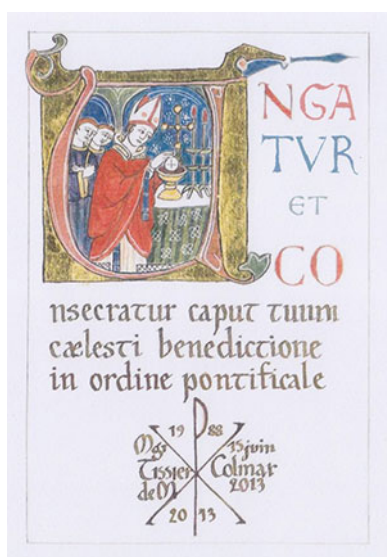 UNGA
TVR
ET
CO
nsecratur caput tuum
cælesti benedictione
in ordine pontificale
19 88
Mgr 15 juin
Tissier Colmar
de M 2013
20 13